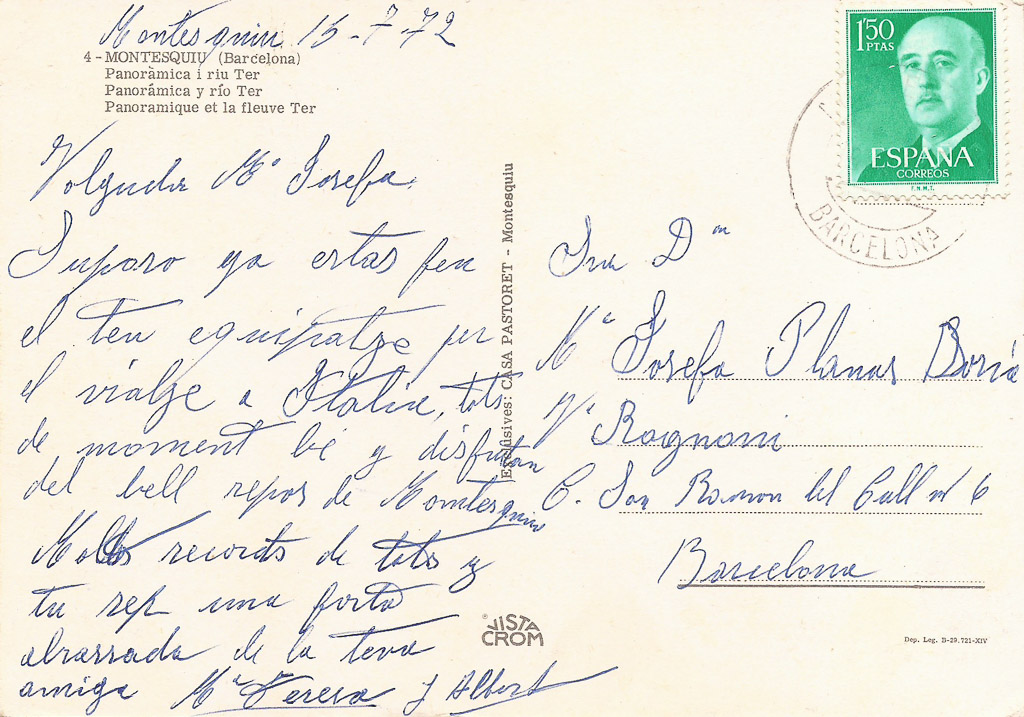 Montesquiu 15-7-72
4 - MONTESQUIU (Barcelona)
Panoràmica i riu Ter
Panorámica y río Ter
Panoramique et la fleuve Ter
Volguda Mª Josefa.
Suposo ya estas fen
el teu equipatge per
el viatge a Italia, tots
de moment bé y disfrutan
del bell repos de Montesquiu
Molts records de tots y
tu rep una forta
abrassada de la teva
amiga Mª Teresa y Albert
Exclusives: CASA PASTORET - Montesquiu
VISTA
CROM
1'50
PTAS
ESPAÑA
CORREOS
F.N.M.T.
BARCELONA
Sra Dña
Mª Josefa Planas Boria
Vª Rognoni
C. San Ramon del Call nº 6
Barcelona
Dep. Leg. B-29.721-XIV